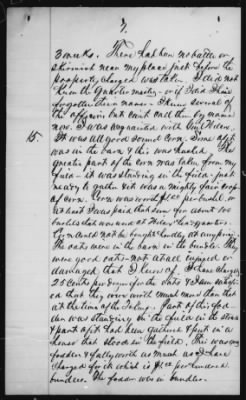 7.
3 weeks. There had been no battle or
skirmish near my place just before the
property charged was taken. I did not
know the Quarter master - or if I did I have
forgotten their names - I knew several of
the officers but cant call them by name
now. I was acquainted with Genl
15. It was all good sound corn. Some of it
was in the barn & this was hauled. The
greater part of the corn was taken from my
field - it was standing in the field - just
ready to gather & it was a mighty fair crop
of corn. Corn was worth $1.00 per bushel or
at least I was paid that sum for about two
bushels that was used at Head quarters.
Corn could not be bought hardly at any price.
The oats were in the barn in the bundle. They
were good oats - not at all injured or
damaged that I know of. I have charged
25 cents per dozen for the oats & I am satisfied
that they were worth much more than that
at the time of the taking. Part of the fodder
was standing in the field on the stalk
& part of it had been gathered & put in a
house that stood in the field. This was good
fodder & fully worth as much as I have
charged for it which is $1.00 per hundred
bundles. The fodder was in bundles.